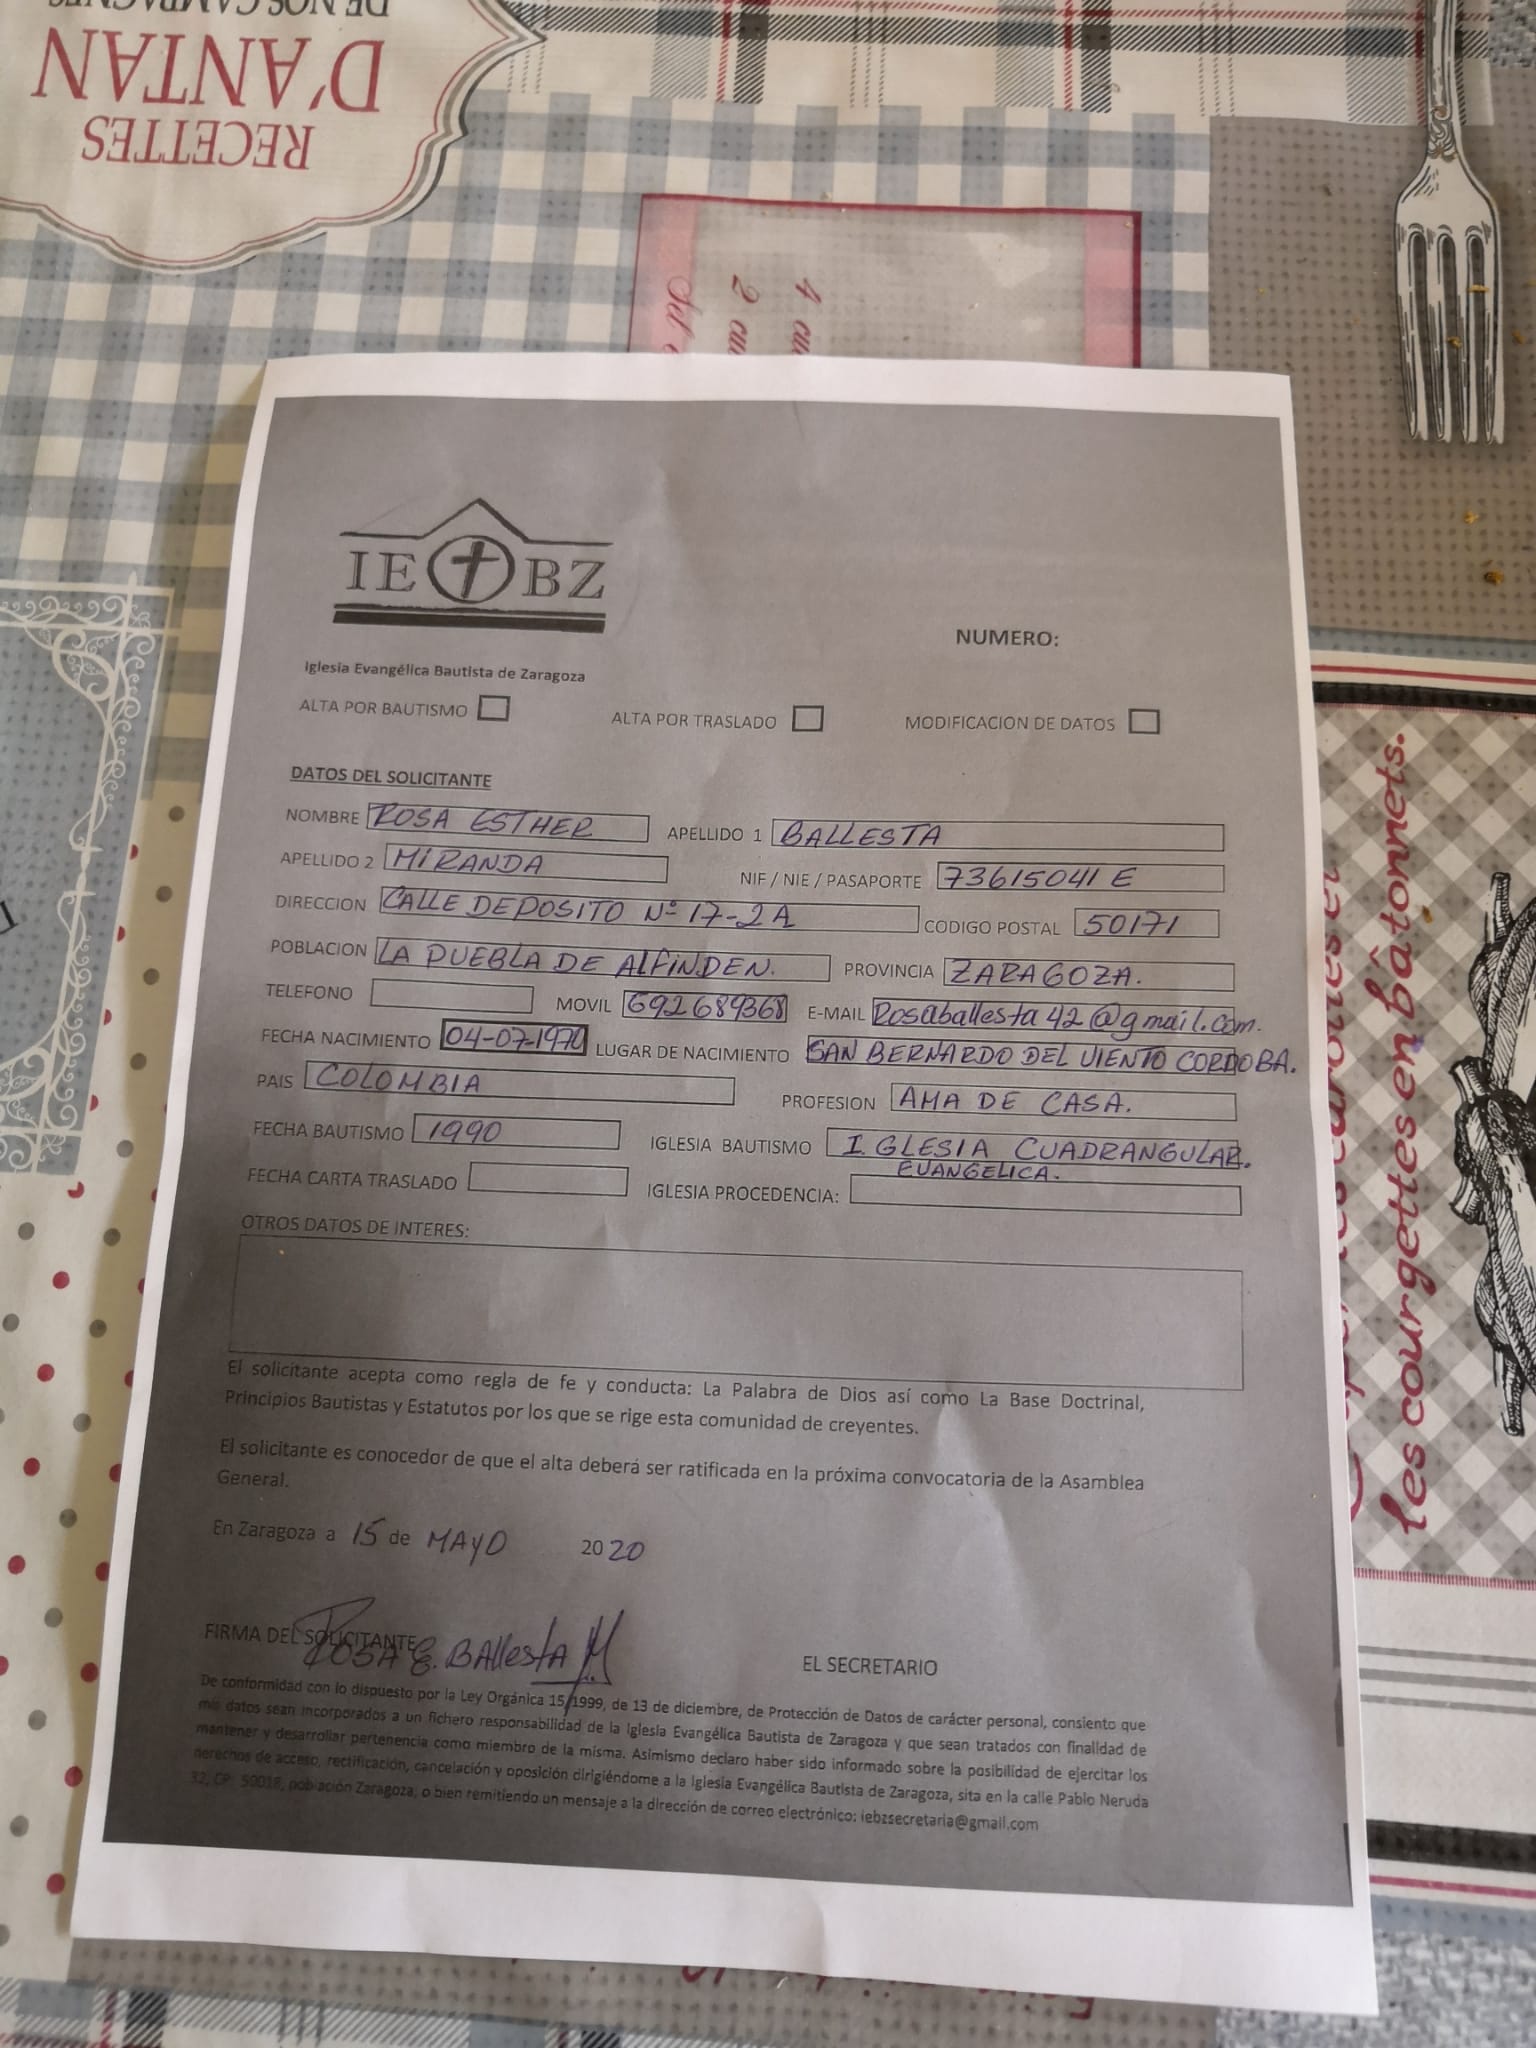 DE NOS CAMPAGNES
D'ANTAN
RECETTES
4 cu
2 cu
Sel
IE BZ
NUMERO:
Iglesia Evangélica Bautista de Zaragoza
ALTA POR BAUTISMO ALTA POR TRASLADO MODIFICACION DE DATOS
DATOS DEL SOLICITANTE
NOMBRE ROSA ESTHER APELLIDO 1 BALLESTA
APELLIDO 2 MIRANDA NIF / NIE / PASAPORTE 73615041 E
DIRECCION CALLE DEPOSITO Nº 17-2A CODIGO POSTAL 50171
POBLACION LA PUEBLA DE ALFINDEN. PROVINCIA ZARAGOZA.
TELEFONO MOVIL 692689368 E-MAIL Rosaballesta42@gmail.com.
FECHA NACIMIENTO 04-07-1970 LUGAR DE NACIMIENTO SAN BERNARDO DEL VIENTO CORDOBA.
PAIS COLOMBIA PROFESION AMA DE CASA.
FECHA BAUTISMO 1990 IGLESIA BAUTISMO I.GLESIA CUADRANGULAR.
EVANGELICA.
FECHA CARTA TRASLADO IGLESIA PROCEDENCIA:
OTROS DATOS DE INTERES:
El solicitante acepta como regla de fe y conducta: La Palabra de Dios así como La Base Doctrinal,
Principios Bautistas y Estatutos por los que se rige esta comunidad de creyentes.
El solicitante es conocedor de que el alta deberá ser ratificada en la próxima convocatoria de la Asamblea
General.
En Zaragoza a 15 de MAYO 2020
FIRMA DEL SOLICITANTE EL SECRETARIO
ROSA E. BAllestA M
De conformidad con lo dispuesto por la Ley Orgánica 15/1999, de 13 de diciembre, de Protección de Datos de carácter personal, consiento que
mis datos sean incorporados a un fichero responsabilidad de la Iglesia Evangélica Bautista de Zaragoza y que sean tratados con finalidad de
mantener y desarrollar pertenencia como miembro de la misma. Asimismo declaro haber sido informado sobre la posibilidad de ejercitar los
derechos de acceso, rectificación, cancelación y oposición dirigiéndome a la Iglesia Evangélica Bautista de Zaragoza, sita en la calle Pablo Neruda
32, CP: 50018, población Zaragoza, o bien remitiendo un mensaje a la dirección de correo electrónico: iebzsecretaria@gmail.com
les courgettes en bâtonnets.